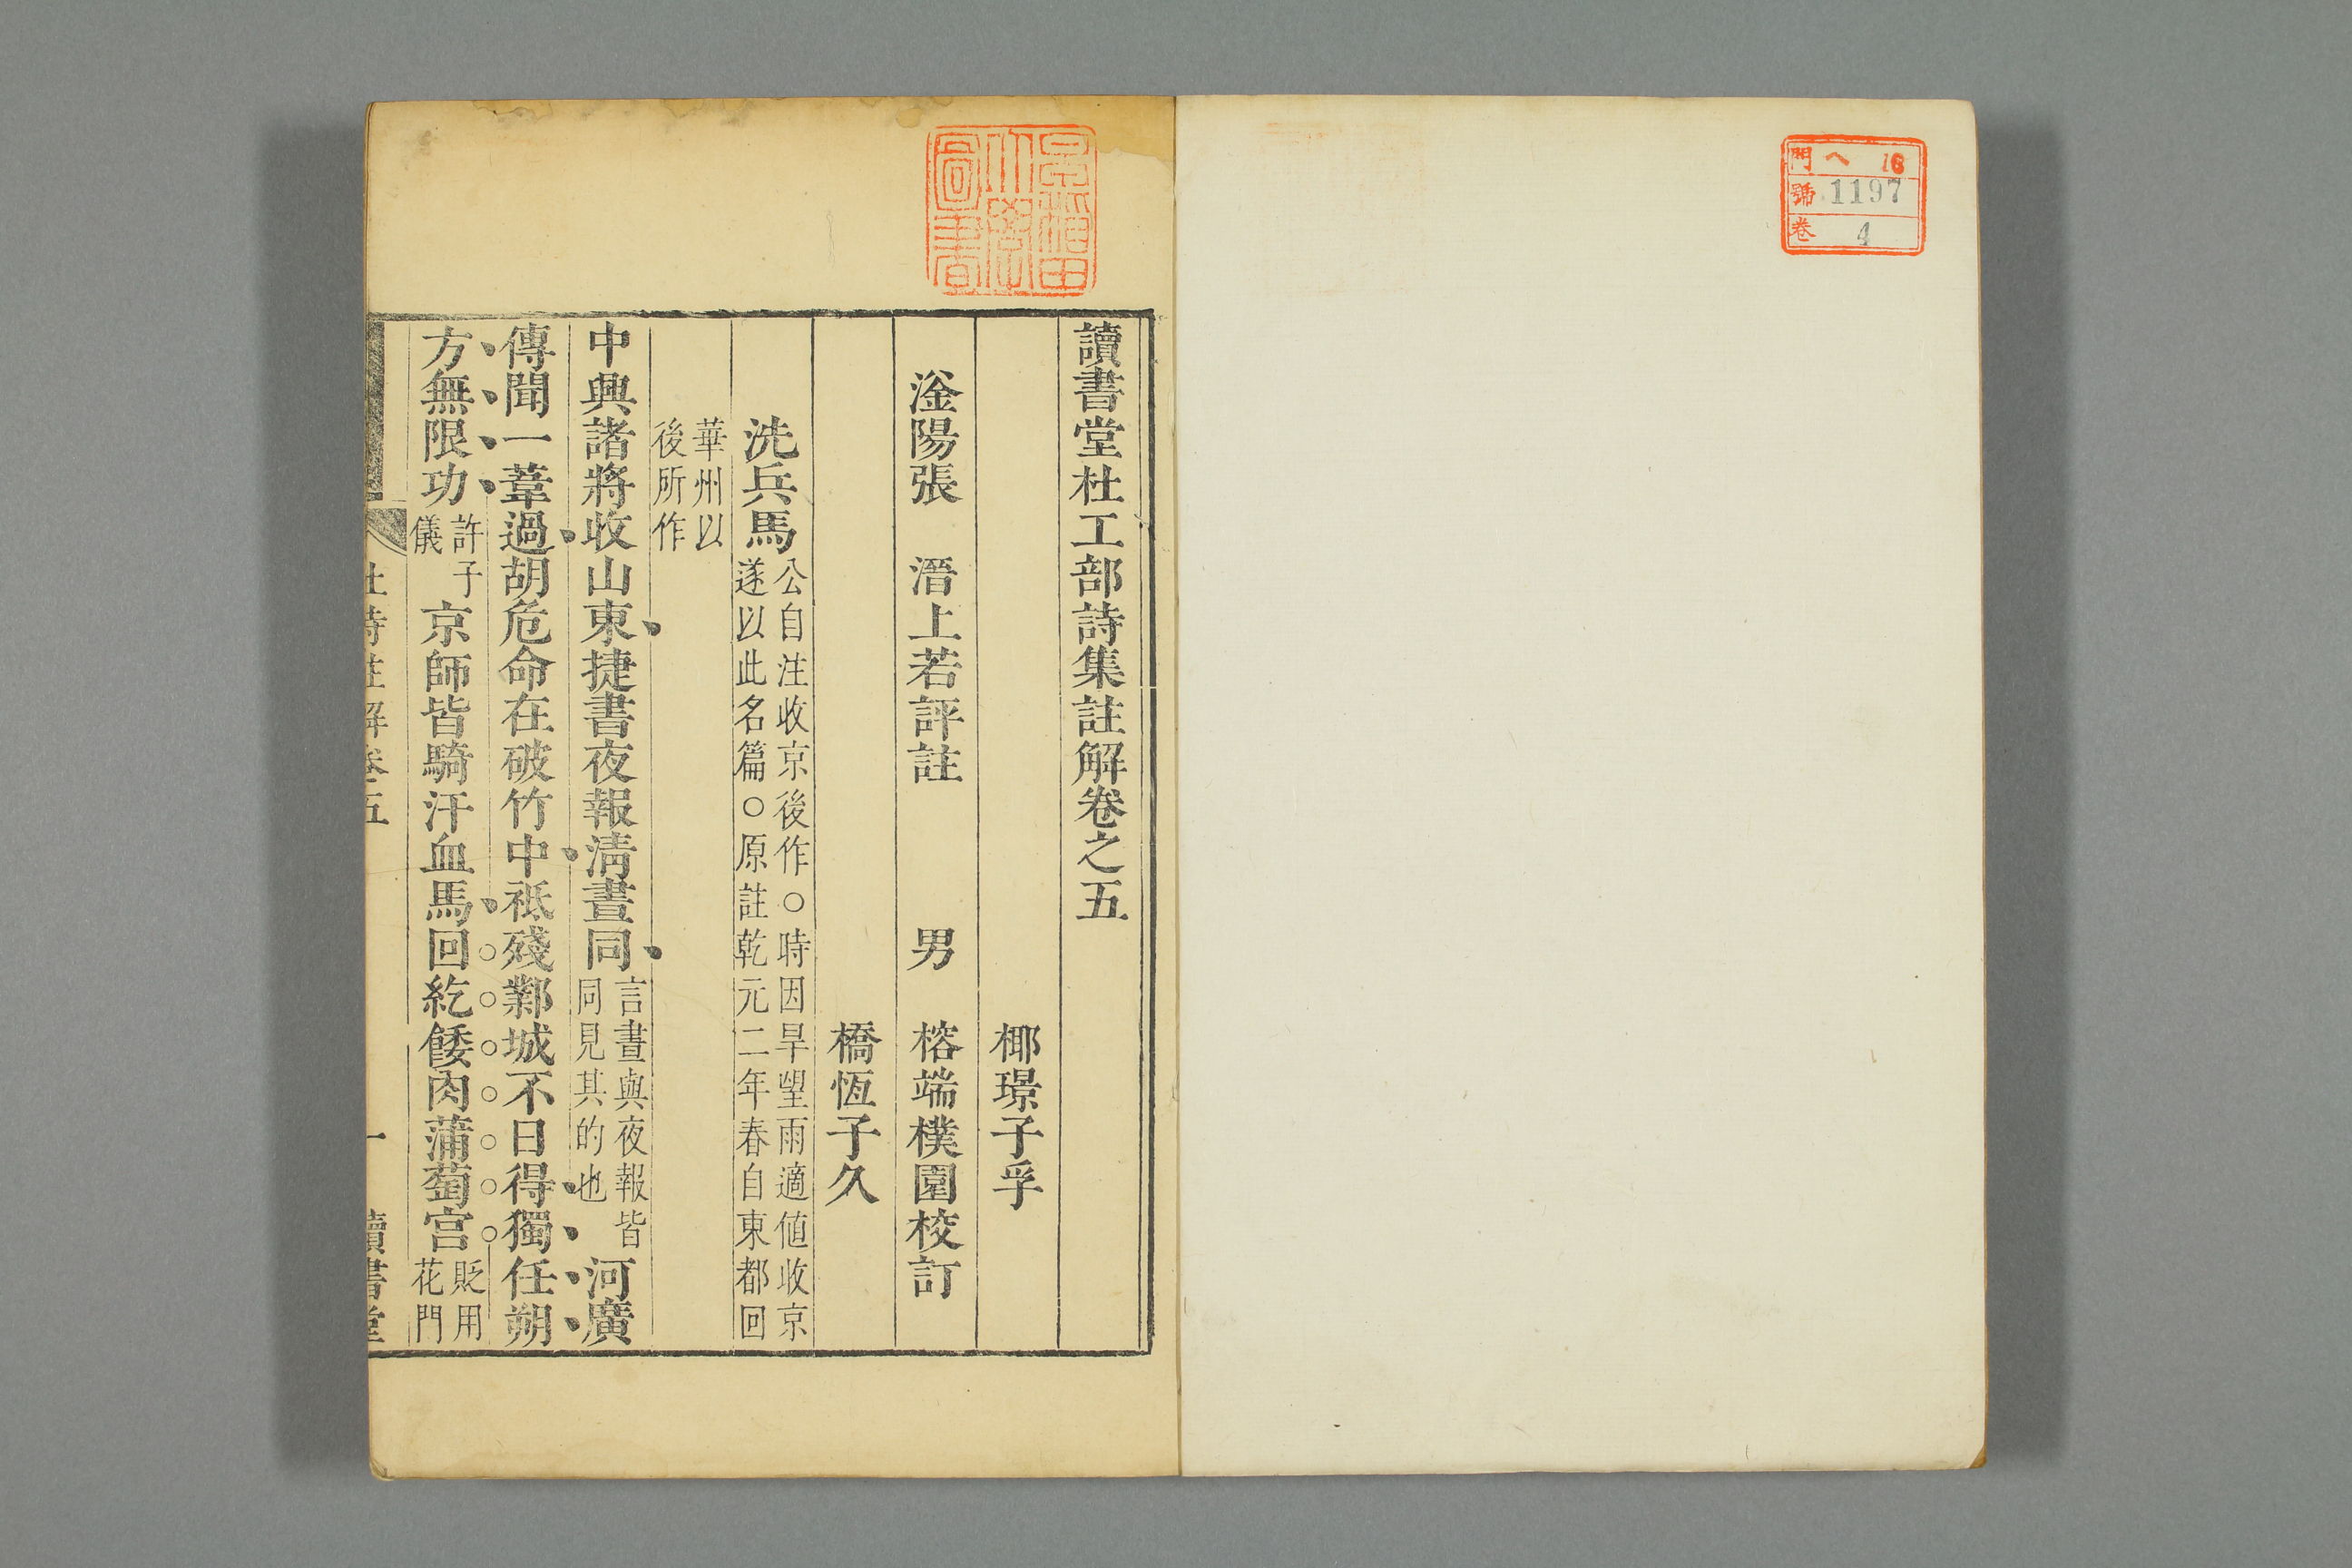 門 ヘ 16
號 1197
卷 4
讀書堂杜工部詩集註解卷之五
椰璟子孚
滏陽張 溍上若評註 男 榕端樸園校訂
橋恆子久
洗兵馬 公自注收京後作○時因旱望雨適値收京
遂以此名篇○原註乾元二年春自東都回
華州以
後所作
中興諸將收山東捷書夜報淸晝同 言晝與夜報皆
同見其的也 河廣
傳聞一葦過胡危命在破竹中祗殘鄴城不日得獨任朔
方無限功 許子
儀 京師皆騎汗血馬回紇餧肉蒲萄宮 貶用
花門
杜詩註解卷五 一 讀書堂